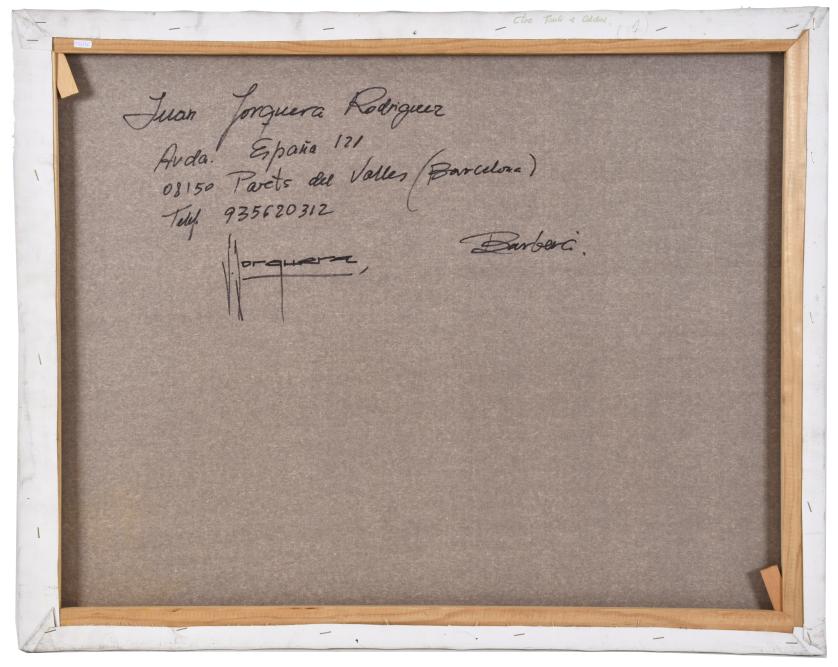 Juan Jorquera Rodriguez
Avda. España 121
08150 Parets del Valles (Barcelona)
Telef. 935620312
J. Jorquera,
Barberi.